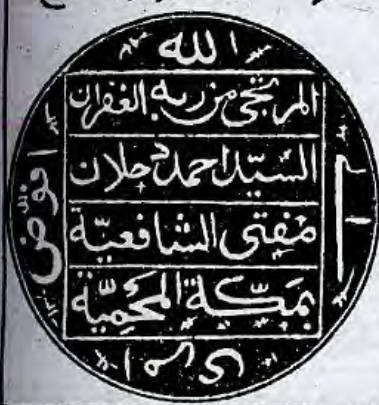 الله
المرتجى من ربه الغفران
السيد احمد دحلان
مفتى الشافعية
بمكة المحمية
افوض
امرى
الى